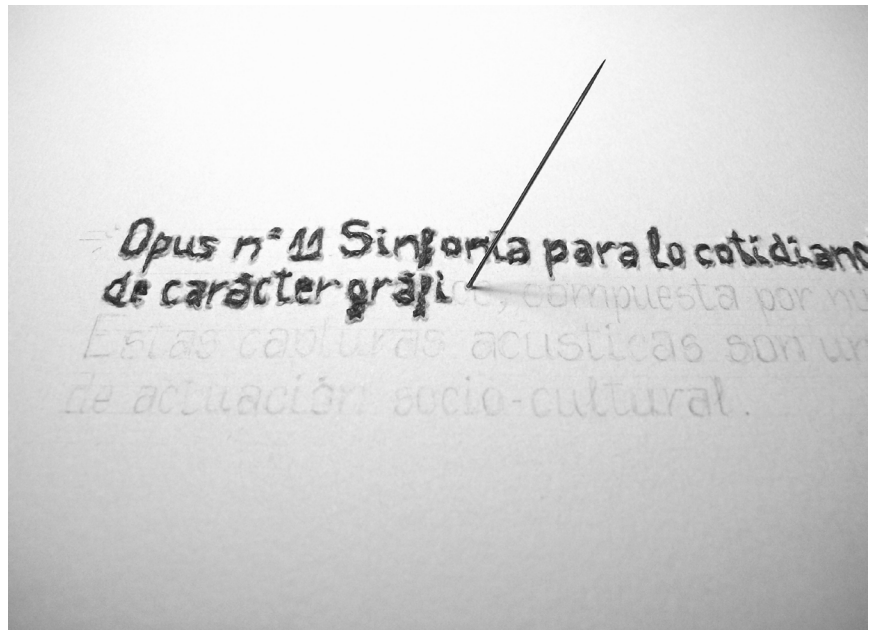 Opus nº 11 Sinfonía para lo cotidiano
de carácter gráfico, compuesta por nu
Estas capturas acusticas son un
de actuación socio-cultural.